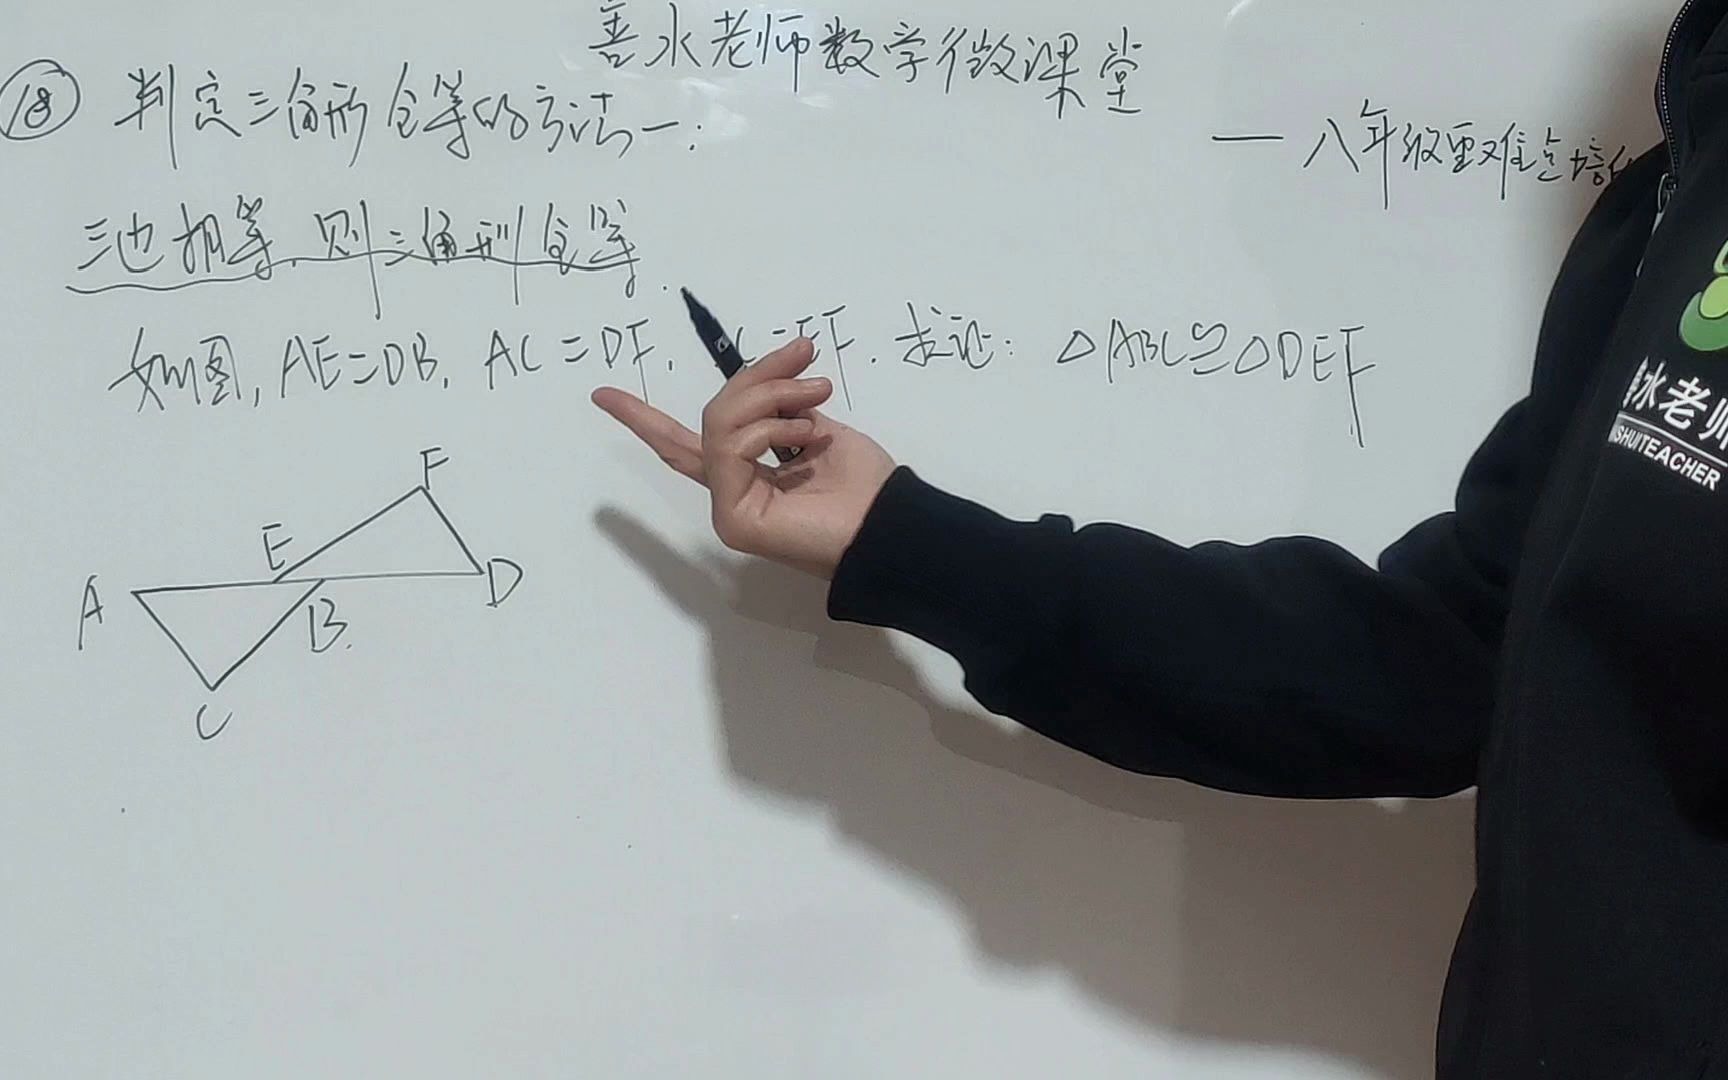 善水老师数学微课堂
⑱ 判定三角形全等的方法一:
——八年级重难点培
三边相等,则三角形全等.
如图,AE=DB,AC=DF, C=EF.求证:△ABC≌△DEF
F
E
A
D
B.
C
水老师
SHUITEACHER